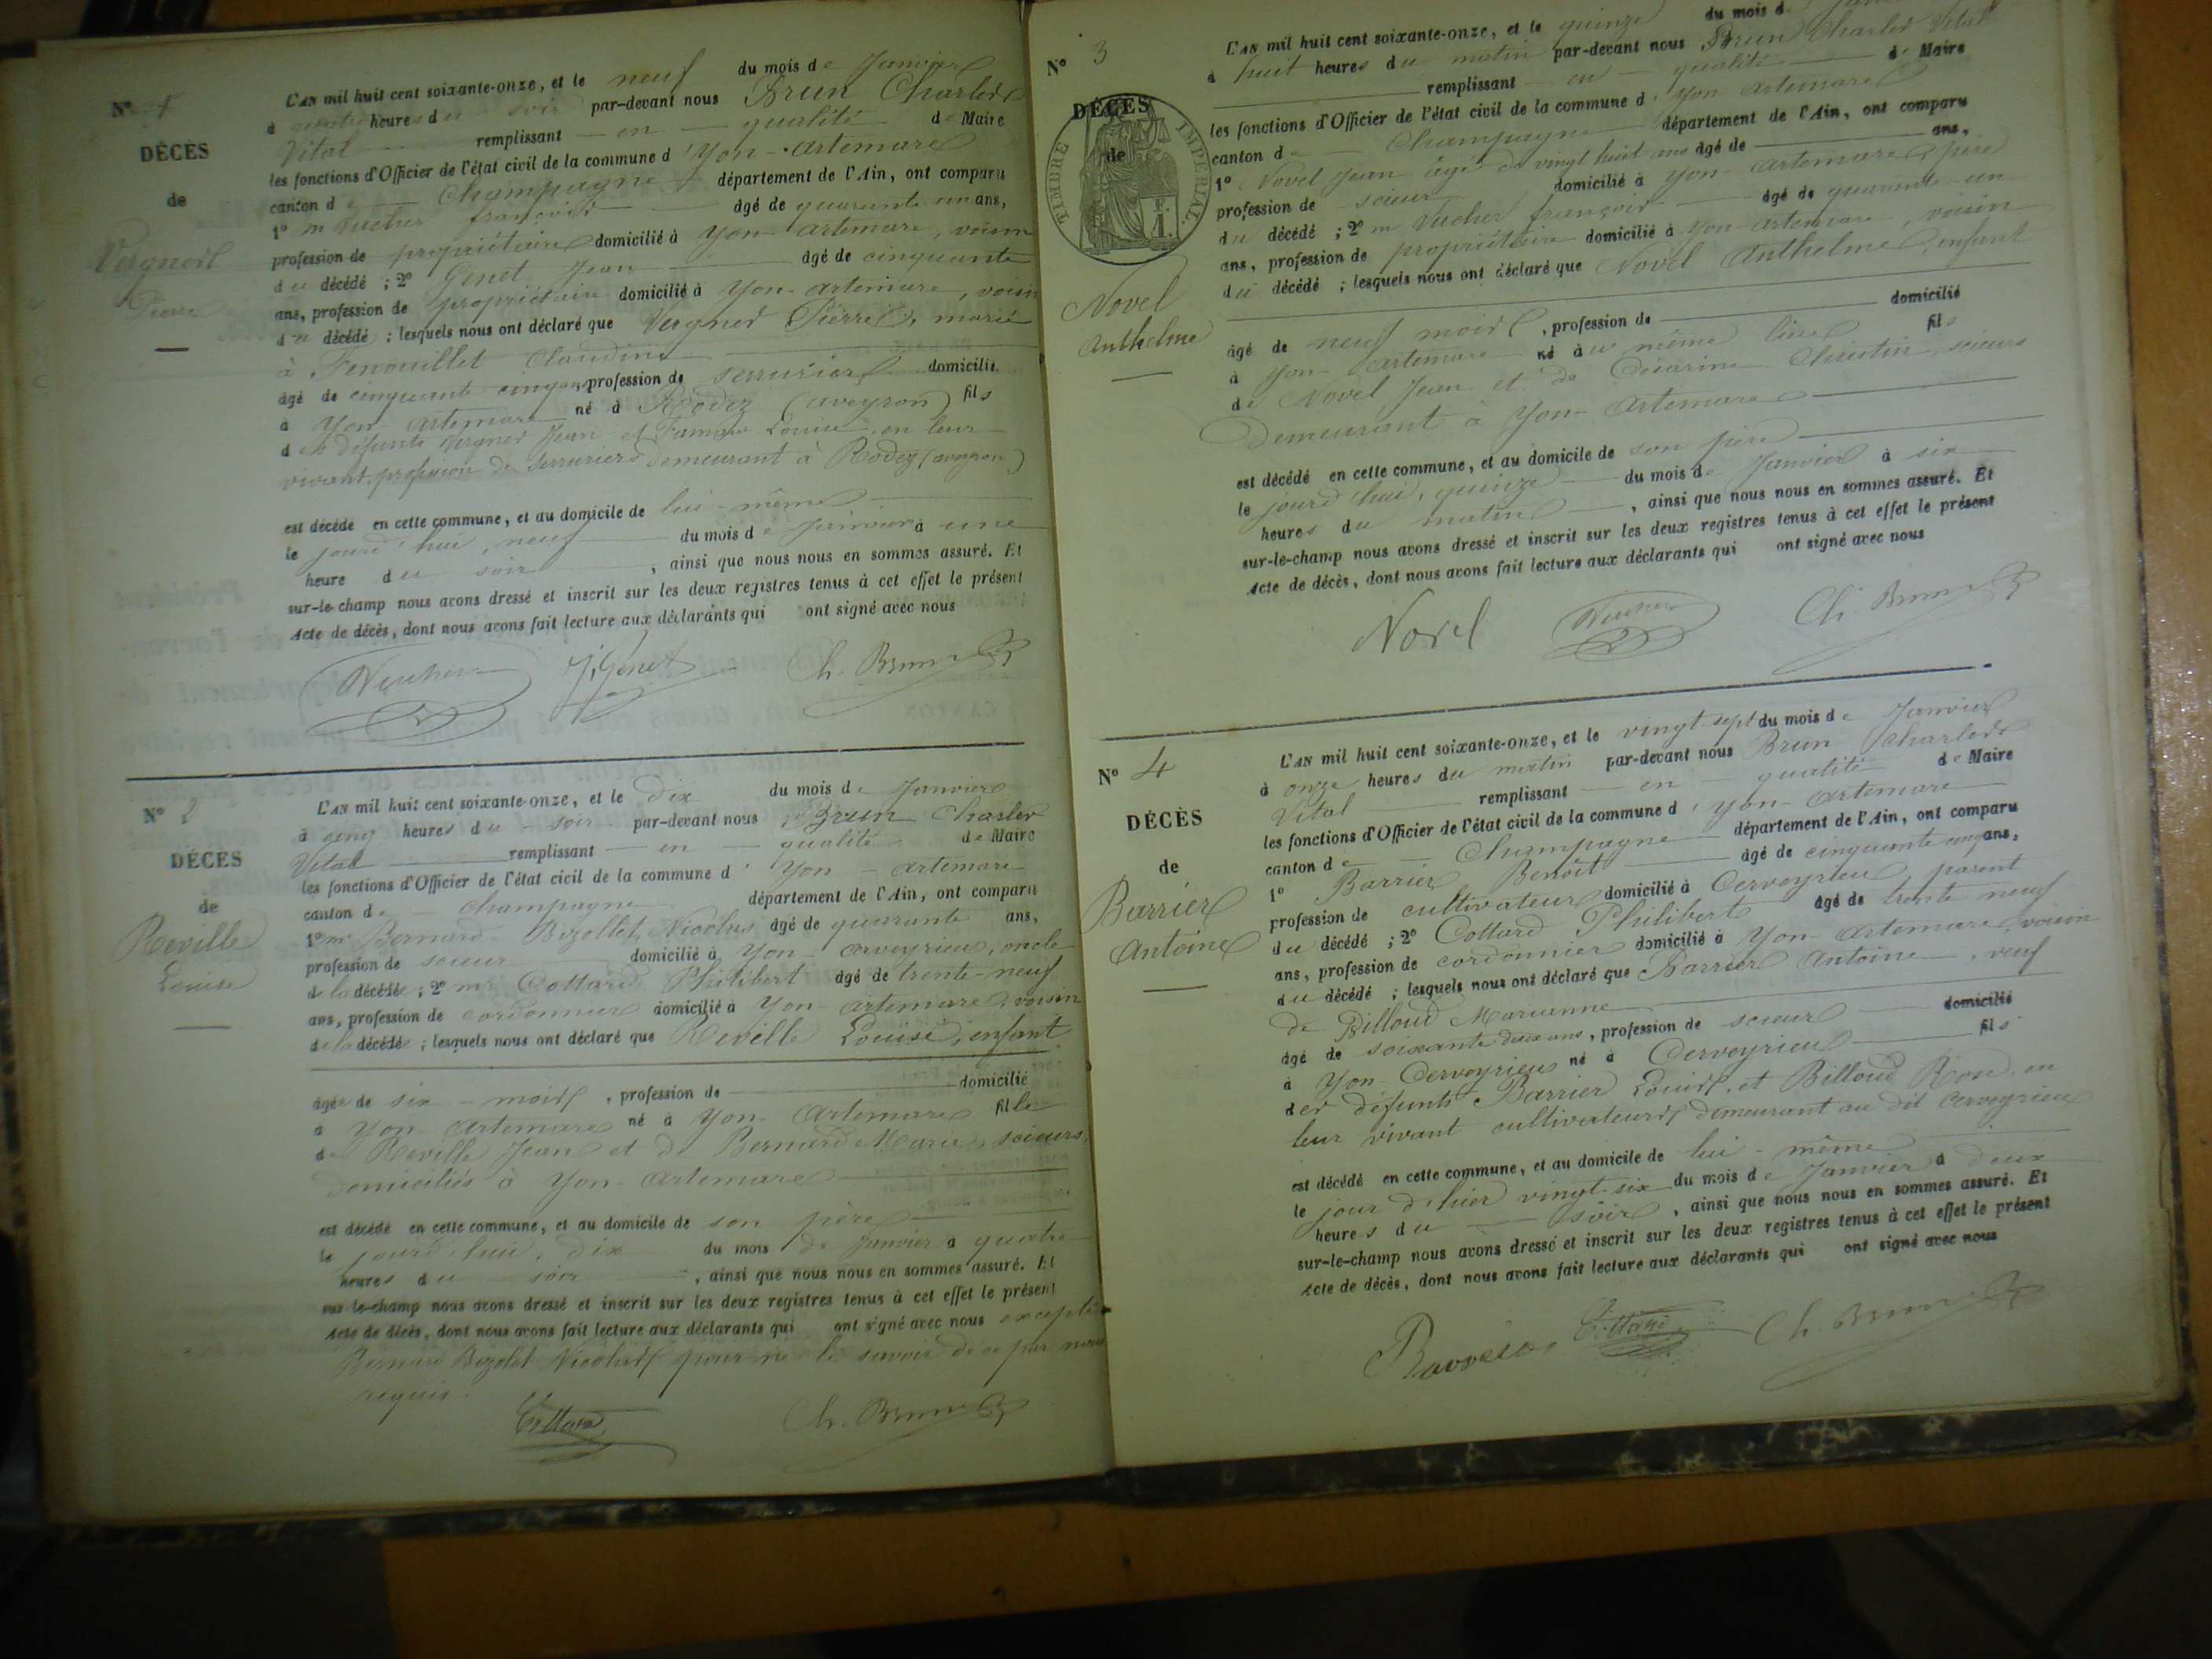 N° 1
DÉCÈS
de
Vergnes
Pierre
L'AN mil huit cent soixante-onze, et le neuf du mois de Janvier
à quatre heures du soir par-devant nous Brun Charles
Vital remplissant en qualité de Maire
les fonctions d'Officier de l'état civil de la commune d'Yon-Artemare
canton de Champagne département de l'Ain, ont comparu
1° m Vucher françois âgé de quarante un ans,
profession de propriétaire domicilié à Yon-Artemare, voisin
du décédé ; 2° Genet Jean âgé de cinquante
ans, profession de propriétaire domicilié à Yon-Artemare, voisin
du décédé ; lesquels nous ont déclaré que Vergnes Pierre, marié
à Fenouillet Claudine
âgé de cinquante cinq ans, profession de serrurier domicilié
à Yon Artemare né à Rodez (aveyron) fils
des défunts Vergnes Jean et Louise en leur
vivant profession de serruriers demeurant à Rodez (aveyron)
est décédé en cette commune, et au domicile de lui-même
le jourd'hui, neuf du mois de Janvier à une
heure du soir, ainsi que nous nous en sommes assuré. Et
sur-le-champ nous avons dressé et inscrit sur les deux registres tenus à cet effet le présent
Acte de décès, dont nous avons fait lecture aux déclarants qui ont signé avec nous
Vucher J. Genet Ch. Brun
N° 2
DÉCÈS
de
Reville
Louise
L'AN mil huit cent soixante-onze, et le dix du mois de Janvier
à cinq heures du soir par-devant nous Brun Charles
Vital remplissant en qualité de Maire
les fonctions d'Officier de l'état civil de la commune d'Yon-Artemare
canton de Champagne département de l'Ain, ont comparu
1° mr Bernard Bizollet Nicolas âgé de quarante ans,
profession de scieur domicilié à Yon-Cerveyrieu, oncle
de la décédée ; 2° mr Cottard Philibert âgé de trente-neuf
ans, profession de cordonnier domicilié à Yon-Artemare, voisin
de la décédée ; lesquels nous ont déclaré que Reville Louise, enfant
âgée de six mois, profession de domicilié
à Yon Artemare né à Yon-Artemare fille
de Reville Jean et de Bernard Marie, scieurs,
domiciliés à Yon-Artemare
est décédé en cette commune, et au domicile de son père
le jourd'hui, dix du mois de Janvier à quatre
heures du soir, ainsi que nous nous en sommes assuré. Et
sur-le-champ nous avons dressé et inscrit sur les deux registres tenus à cet effet le présent
Acte de décès, dont nous avons fait lecture aux déclarants qui ont signé avec nous excepté
Bernard Bizolet Nicolas pour ne le savoir de ce par nous
requis.
Cottard Ch. Brun
N° 3
DÉCÈS
de
TIMBRE IMPÉRIAL
Novel
Anthelme
L'AN mil huit cent soixante-onze, et le quinze du mois de
à huit heures du matin par-devant nous Brun Charles Vital
remplissant en qualité de Maire
les fonctions d'Officier de l'état civil de la commune d'Yon-Artemare
canton de Champagne département de l'Ain, ont comparu
1° Novel Jean âgé de vingt huit ans âgé de ans,
profession de scieur domicilié à Yon-Artemare, père
du décédé ; 2° m Vucher françois âgé de quarante-un
ans, profession de propriétaire domicilié à Yon-Artemare, voisin
du décédé ; lesquels nous ont déclaré que Novel Anthelme, enfant
âgé de neuf mois, profession de domicilié
à Yon-Artemare né au même lieu fils
de Novel Jean et de Césarine Christin scieurs
Demeurant à Yon-Artemare
est décédé en cette commune, et au domicile de son père
le jourd'hui, quinze du mois de Janvier à six
heures du matin, ainsi que nous nous en sommes assuré. Et
sur-le-champ nous avons dressé et inscrit sur les deux registres tenus à cet effet le présent
Acte de décès, dont nous avons fait lecture aux déclarants qui ont signé avec nous
Novel Vucher Ch. Brun
N° 4
DÉCÈS
de
Barrier
Antoine
L'AN mil huit cent soixante-onze, et le vingt-sept du mois de Janvier
à onze heures du matin par-devant nous Brun Charles
Vital remplissant en qualité de Maire
les fonctions d'Officier de l'état civil de la commune d'Yon-Artemare
canton de Champagne département de l'Ain, ont comparu
1° Barrier Benoît âgé de cinquante cinq ans,
profession de cultivateur domicilié à Cerveyrieu, parent
du décédé ; 2° Cottard Philibert âgé de trente neuf
ans, profession de cordonnier domicilié à Yon-Artemare, voisin
du décédé ; lesquels nous ont déclaré que Barrier Antoine, veuf
de Billoud Marianne
âgé de soixante deux ans, profession de scieur domicilié
à Yon-Cerveyrieu né à Cerveyrieu fils
des défunts Barrier Louis, et Billoud Rose, en
leur vivant cultivateurs, demeurant au dit Cerveyrieu
est décédé en cette commune, et au domicile de lui-même
le jour d'hier vingt-six du mois de Janvier à deux
heures du soir, ainsi que nous nous en sommes assuré. Et
sur-le-champ nous avons dressé et inscrit sur les deux registres tenus à cet effet le présent
Acte de décès, dont nous avons fait lecture aux déclarants qui ont signé avec nous
Barrier Cottard Ch. Brun